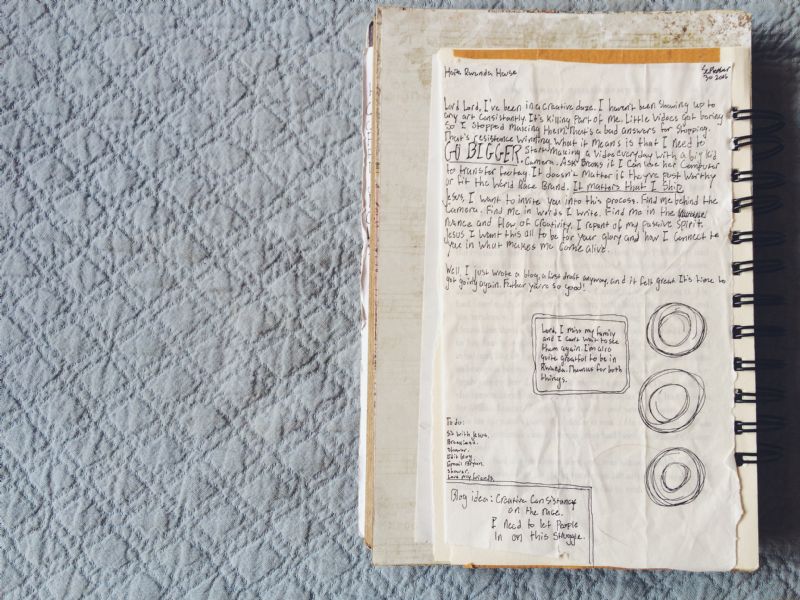 Rwanda House
September
30 2016
Lord Lord, I've been in a creative daze. I haven't been showing up to
any art consistantly. It's killing part of me. Little videos got boring
so I stopped making them. That's a bad answers for stopping.
That's resistence winning. What it means is that I need to
GO BIGGER. Start making a video everyday with a big kid
camera. Ask if I can use her computer
to transfer footage. It doesn't matter if they're post worthy
or fit the World Race Brand. It matters that I ship.
Jesus, I want to invite you into this process. Find me behind the
camera. Find me in words I write. Find me in the
nuance and flow of creativity. I repent of my passive spirit.
Jesus I want this all to be for your glory and how I connect to
you in what makes me come alive.
Well, I just wrote a blog, a first draft anyway, and it felt great. It's time to
get going again. Father you're so good!
Lord, I miss my family
and I can't wait to see
them again. I'm also
quite greatful to be in
Rwanda. Thanks for both
things.
To do:
Sit with Jesus.
Shower.
Edit
Email
Shower.
Love my friends.
Blog idea: Creative Consistancy
on the race.
I need to let people
in on this struggle.